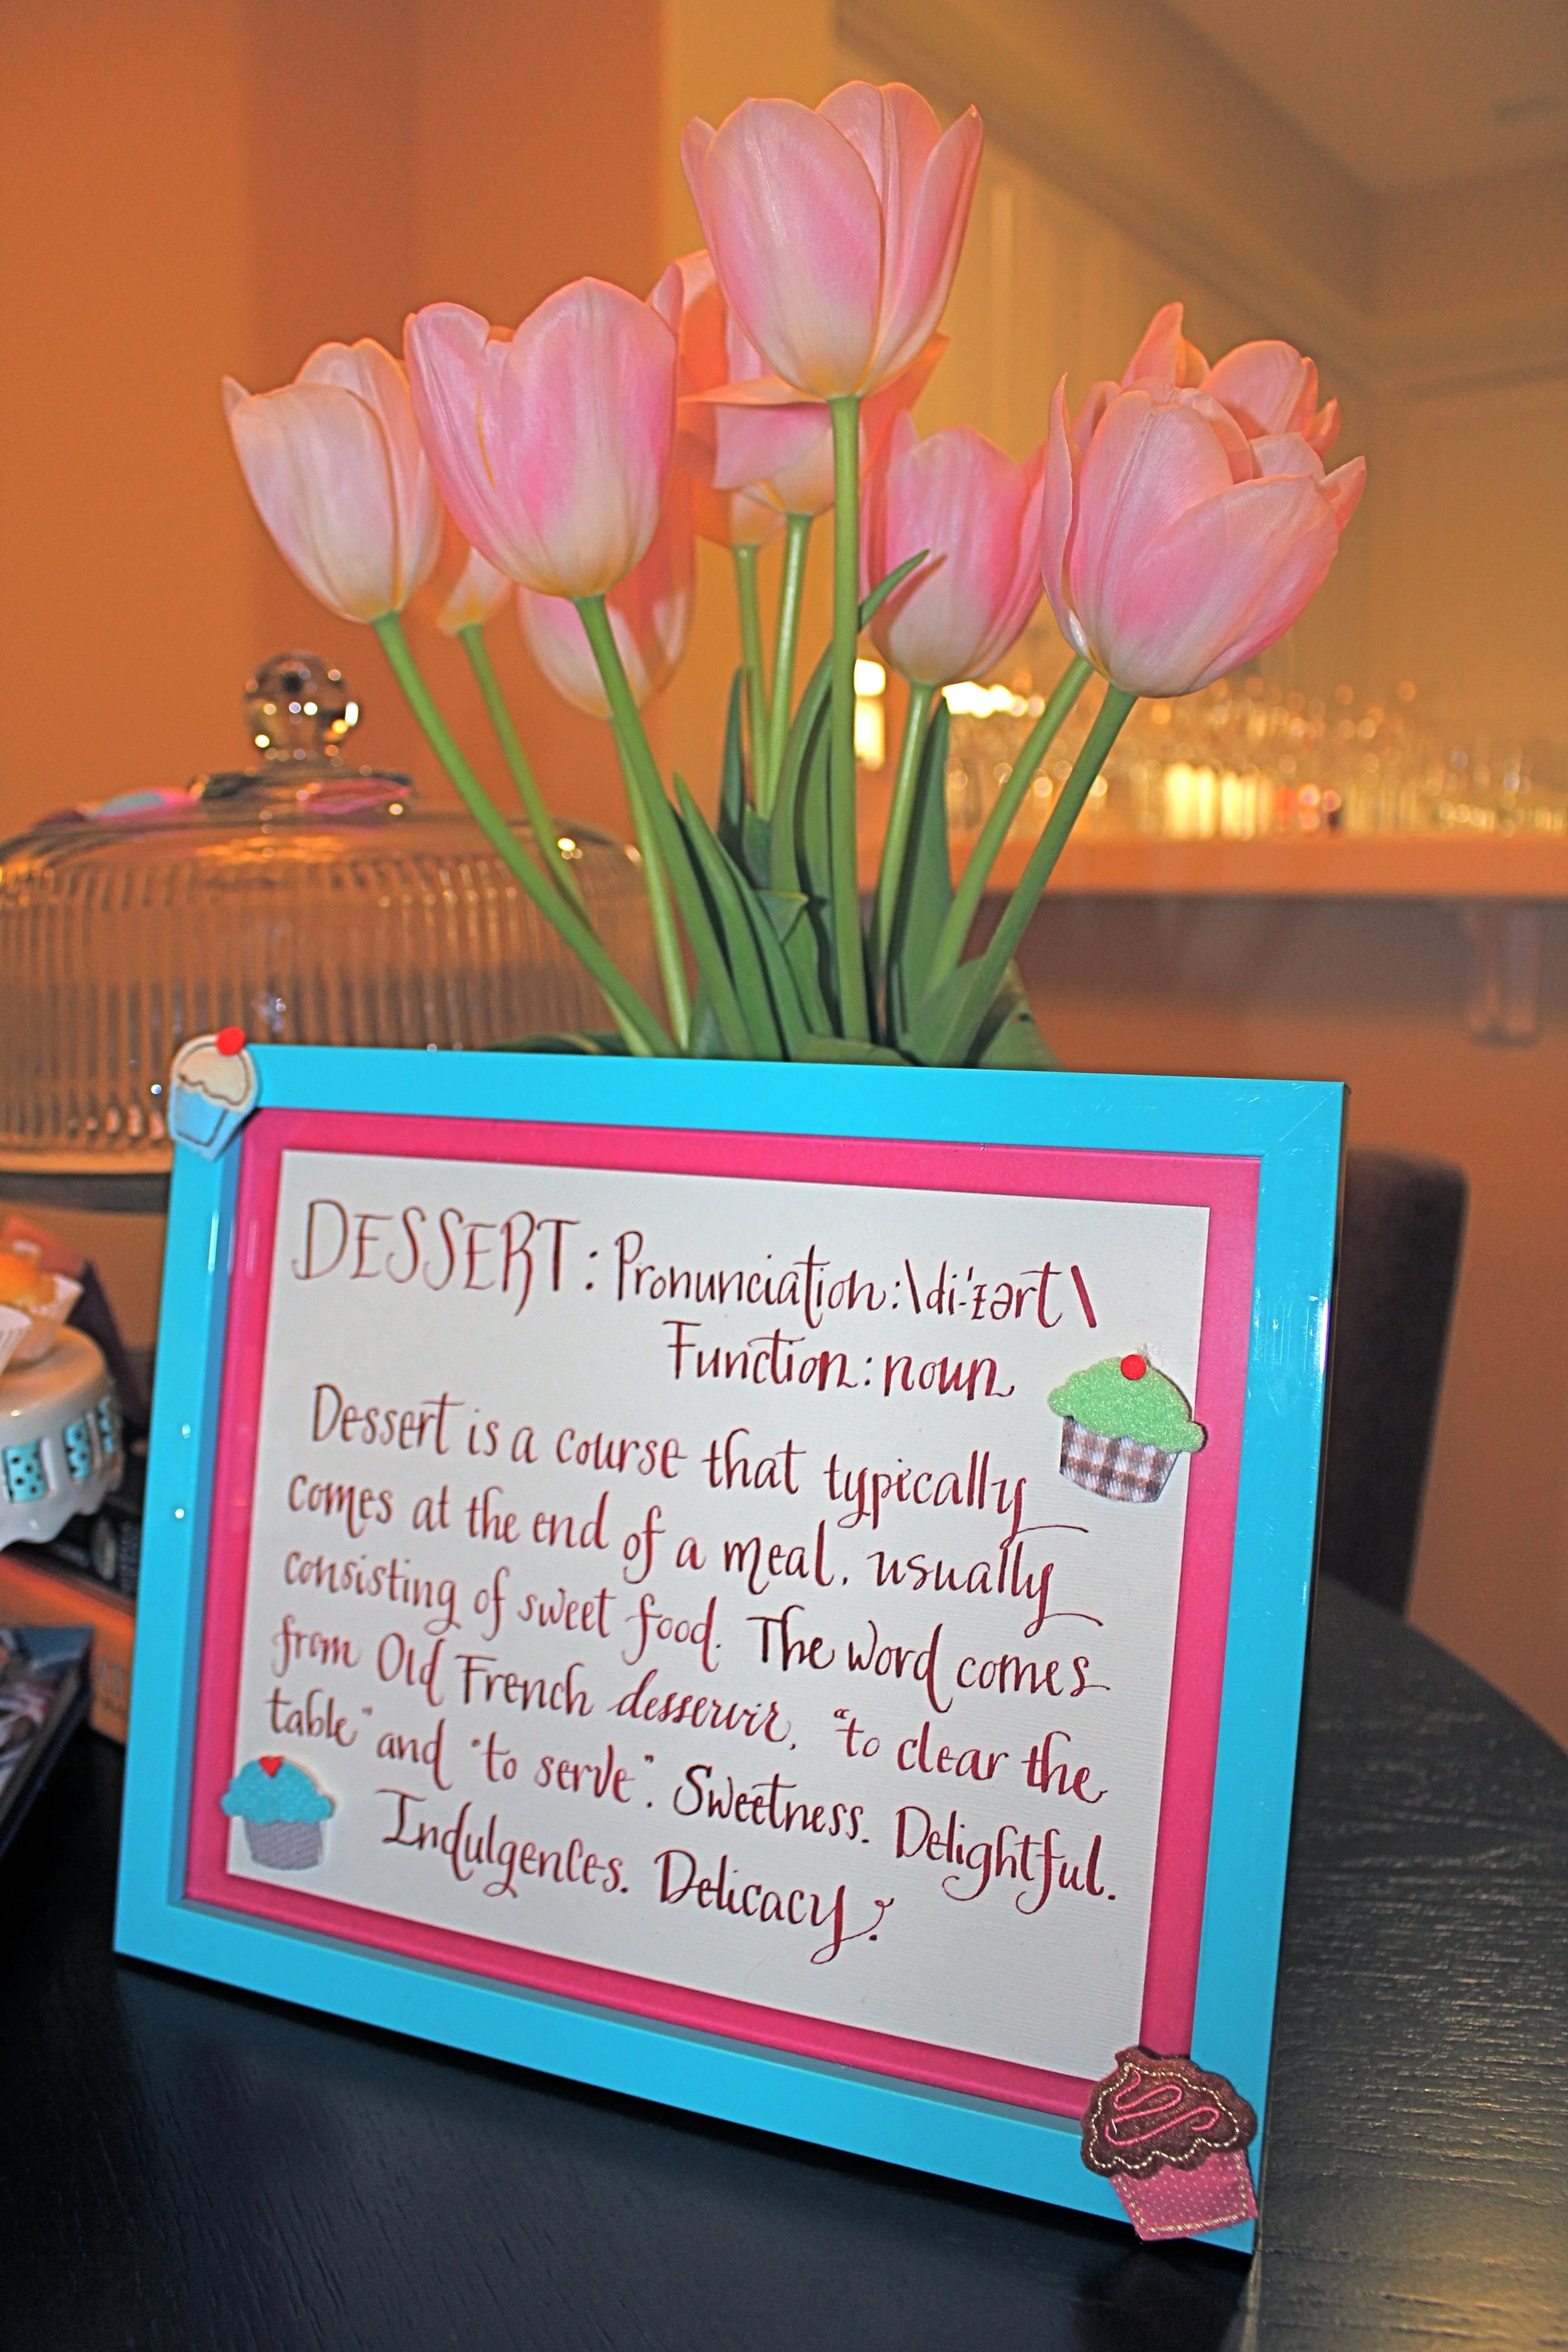 DESSERT: Pronunciation:\di-'zərt\
Function: noun
Dessert is a course that typically
comes at the end of a meal, usually
consisting of sweet food. The word comes
from Old French desservir, "to clear the
table" and "to serve". Sweetness. Delightful.
Indulgences. Delicacy.